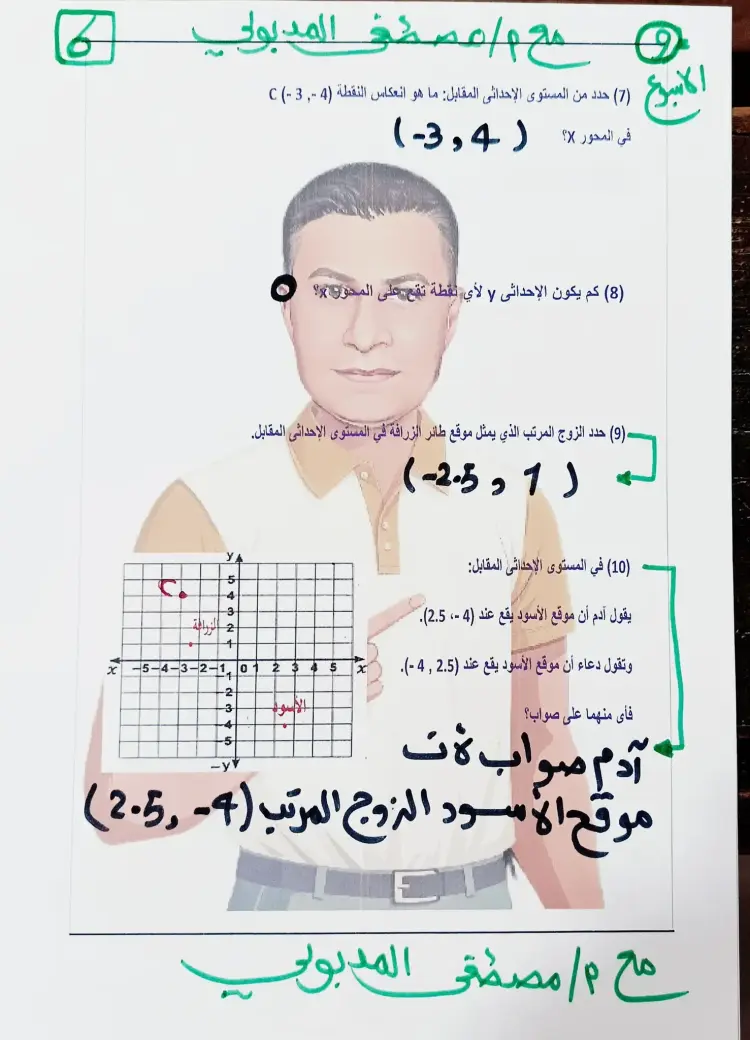 9
الأسبوع
مع م/ مصطفى المدبولي
6
(7) حدد من المستوى الإحداثى المقابل: ما هو انعكاس النقطة C (- 3 ,- 4)
في المحور X؟ (-3 , 4)
(8) كم يكون الإحداثى y لأي نقطة تقع على المحور x؟ 0
(9) حدد الزوج المرتب الذي يمثل موقع طائر الزرافة في المستوى الإحداثى المقابل.
(-2.5 , 1)
(10) في المستوى الإحداثى المقابل:
يقول آدم أن موقع الأسود يقع عند (4 -، 2.5).
وتقول دعاء أن موقع الأسود يقع عند (2.5 , 4 -).
فأى منهما على صواب؟
y
5
4
3
2
1
x -5 -4 -3 -2 -1 0 1 2 3 4 5 x
-1
-2
-3
-4
-5
-y
الزرافة
الأسود
آدم صواب لأن
موقع الأسود الزوج المرتب (2.5 , -4)
مع م/ مصطفى المدبولي